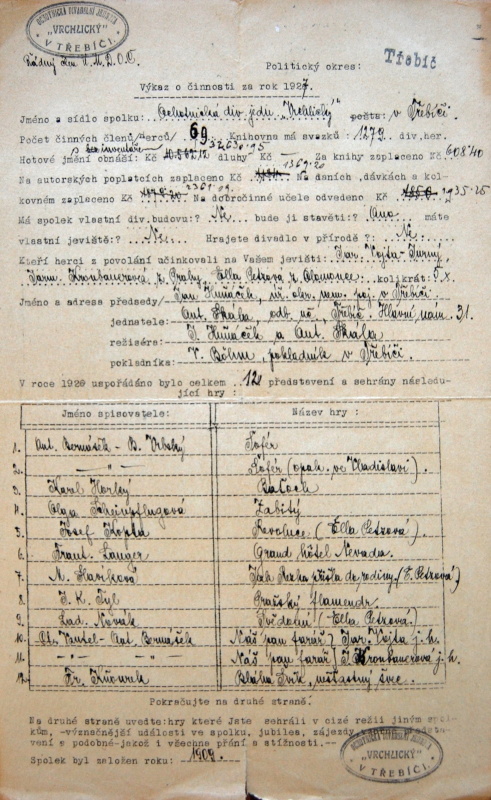 OCHOTNICKÁ DIVADELNÍ JEDNOTA
"VRCHLICKÝ"
V TŘEBÍČI.
Řádný člen Ú.M.D.O.Č.
Politický okres:
Třebíč
Výkaz o činnosti za rok 1927.
Jméno a sídlo spolku: Ochotnická div. jedn. "Vrchlický" pošta: v Třebíči.
Počet činných členů/herců/ 69 Knihovna má svazků: 1279 div.her.
s inventářem 32630.95
Hotové jmění obnáší: Kč dluhy Kč — Za knihy zaplaceno Kč 608.40
1369.20
Na autorských poplatcích zaplaceno Kč Na daních,dávkách a kol-
2361.09
kovném zaplaceno Kč Na dobročinné učele odvedeno Kč 1935.25
Má spolek vlastní div.budovu:? Ne bude ji stavěti:? Ano máte
vlastní jeviště:? Ne Hrajete divadlo v přírodě ?: Ne
Kteří herci z povolání účinkovali na Vašem jevišti: Jar. Vojta-Jurný,
Jarm. Kronbauerová z Prahy - Ella Petzová z Olomouce. kolikrát: 5x
Jméno a adresa předsedy/ Jan Huňáček, v Třebíči.
jednatele: Ant. Skála odb. uč. Třebíč Hlavní nám. 31.
režiséra: J. Huňáček a Ant. Skála
pokladníka: V. Böhm, pokladník v Třebíči.
V roce 1920 uspořádáno bylo celkem ..12 představení a sehrány násleďu-
jící hry :
Jméno spisovatele: Název hry :
1. Ant. Bermášek - B. Vrbský Šofér
2. — " — Šofér (opak. ve Vladislavi).
3. Karel Horký Baťoch
4. Olga Scheinpflugová Zabitý
5. Josef Kopta Revoluce (Ella Petzová).
6. Frant. Langer Grand hôtel Nevada.
7. M. Slavíková Jak Rézka přišla do rodiny (E. Petzová)
8. J. K. Tyl Pražský flamendr.
9. Lad. Novák Svědomí (Ella Petzová)
10. Vantel - Ant. Bermášek Náš pan farář / Jar. Vojta j. h.
11. — " — " — Náš pan farář / J. Kronbauerová j. h.
12. Fr. Bláha Dřík, šťastný švec.
Pokračujte na druhé straně.
Na druhé straně uveďte:hry které jste sehráli v cizé režii jiným spol-
kům, -význačnější události ve spolku, jubilea, zájezdy,
vení a podobné-jakož i všechne přání a stížnosti.--
Spolek byl založen roku: ..1909.
OCHOTNICKÁ DIVADELNÍ JEDNOTA
"VRCHLICKÝ"
V TŘEBÍČI.